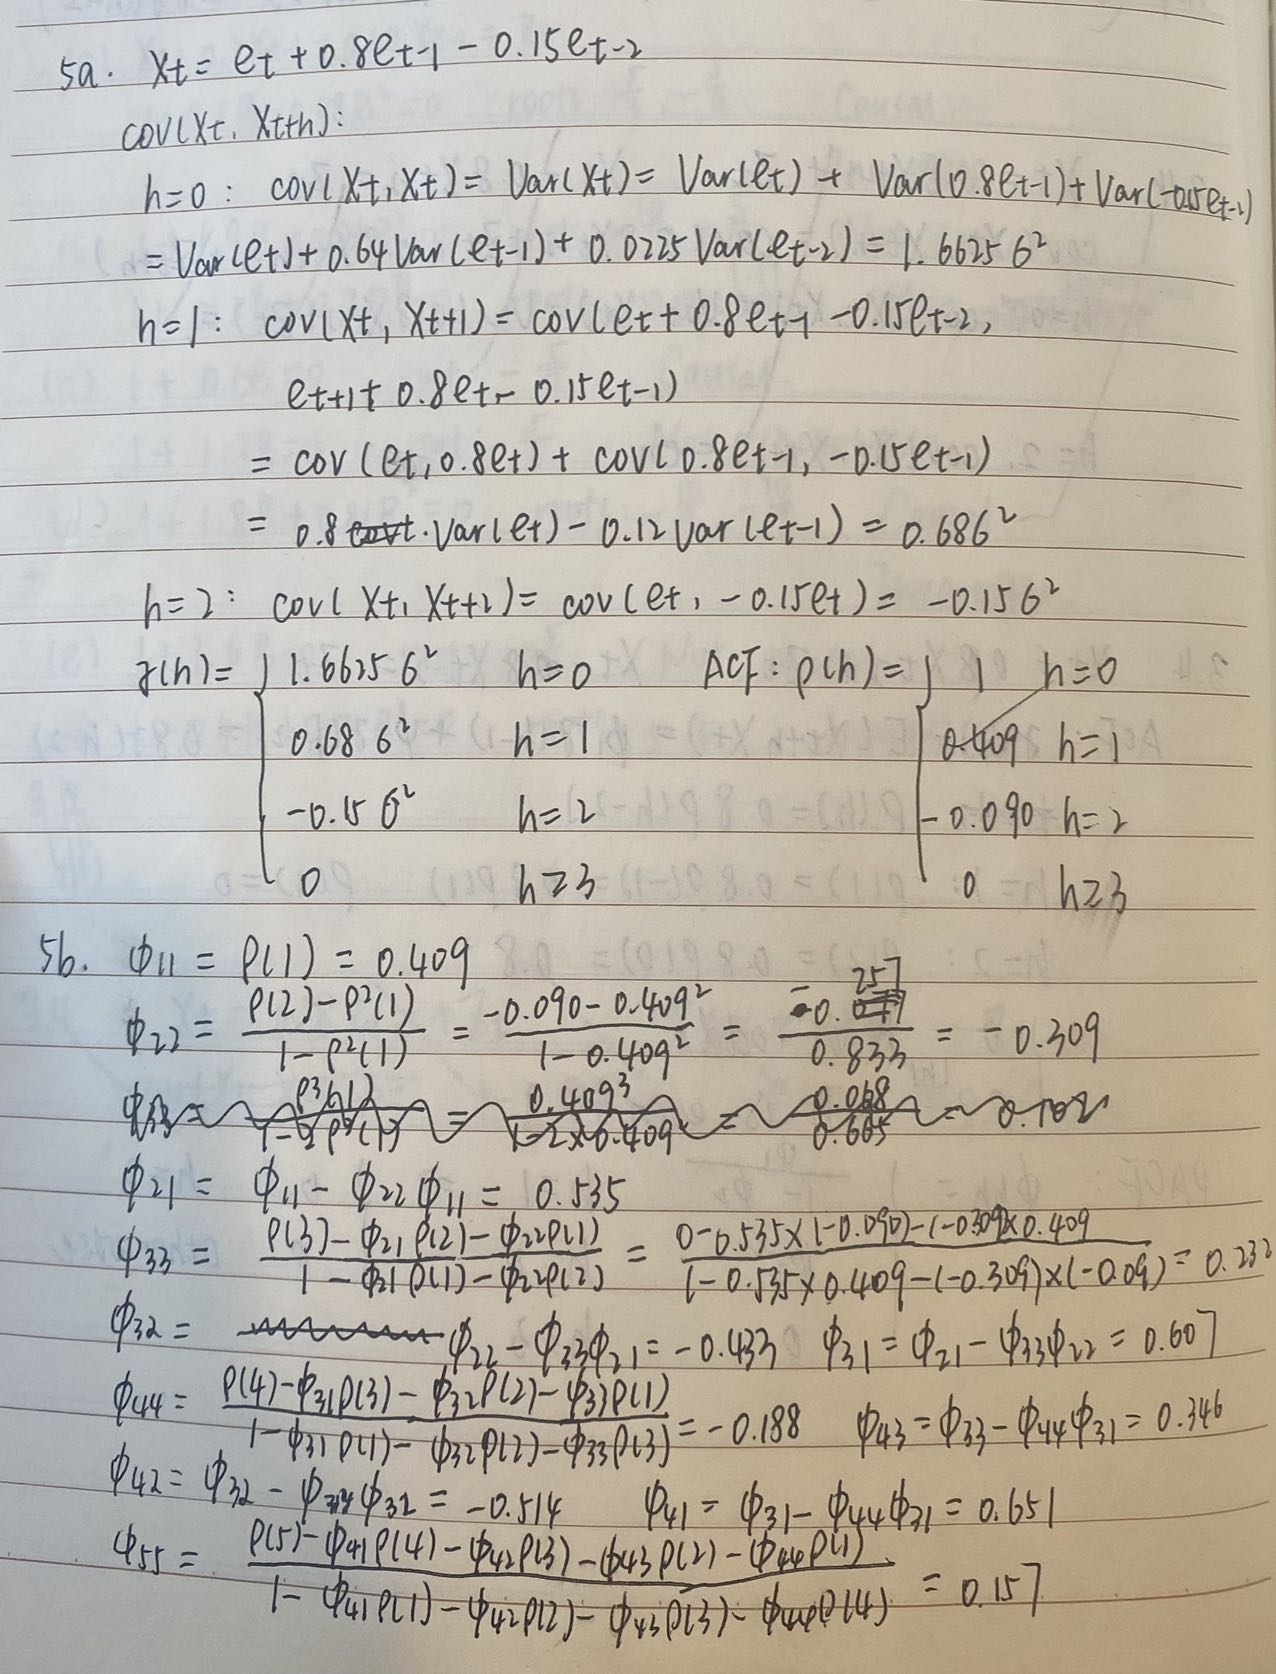 5a. Xt = et + 0.8et-1 - 0.15et-2
cov(Xt, Xt+h):
h=0: cov(Xt, Xt) = Var(Xt) = Var(et) + Var(0.8et-1) + Var(-0.15et-2)
= Var(et) + 0.64Var(et-1) + 0.0225Var(et-2) = 1.6625σ²
h=1: cov(Xt, Xt+1) = cov(et + 0.8et-1 - 0.15et-2,
et+1 + 0.8et - 0.15et-1)
= cov(et, 0.8et) + cov(0.8et-1, -0.15et-1)
= 0.8·Var(et) - 0.12Var(et-1) = 0.68σ²
h=2: cov(Xt, Xt+2) = cov(et, -0.15et) = -0.15σ²
γ(h) = { 1.6625σ² h=0 ACF: ρ(h) = { 1 h=0
0.68σ² h=1 0.409 h=1
-0.15σ² h=2 -0.090 h=2
0 h≥3 0 h≥3
5b. φ11 = ρ(1) = 0.409
φ22 = (ρ(2)-ρ²(1))/(1-ρ²(1)) = (-0.090-0.409²)/(1-0.409²) = (-0.257)/(0.833) = -0.309
φ21 = φ11 - φ22φ11 = 0.535
φ33 = (ρ(3)-φ21ρ(2)-φ22ρ(1))/(1-φ21ρ(1)-φ22ρ(2)) = (0-0.535×(-0.090)-(-0.309)×0.409)/(1-0.535×0.409-(-0.309)×(-0.09)) = 0.232
φ32 = φ22 - φ33φ21 = -0.433 φ31 = φ21 - φ33φ22 = 0.607
φ44 = (ρ(4)-φ31ρ(3)-φ32ρ(2)-φ33ρ(1))/(1-φ31ρ(1)-φ32ρ(2)-φ33ρ(3)) = -0.188 φ43 = φ33 - φ44φ31 = 0.346
φ42 = φ32 - φ44φ32 = -0.514 φ41 = φ31 - φ44φ31 = 0.651
φ55 = (ρ(5)-φ41ρ(4)-φ42ρ(3)-φ43ρ(2)-φ44ρ(1))/(1-φ41ρ(1)-φ42ρ(2)-φ43ρ(3)-φ44ρ(4)) = 0.157